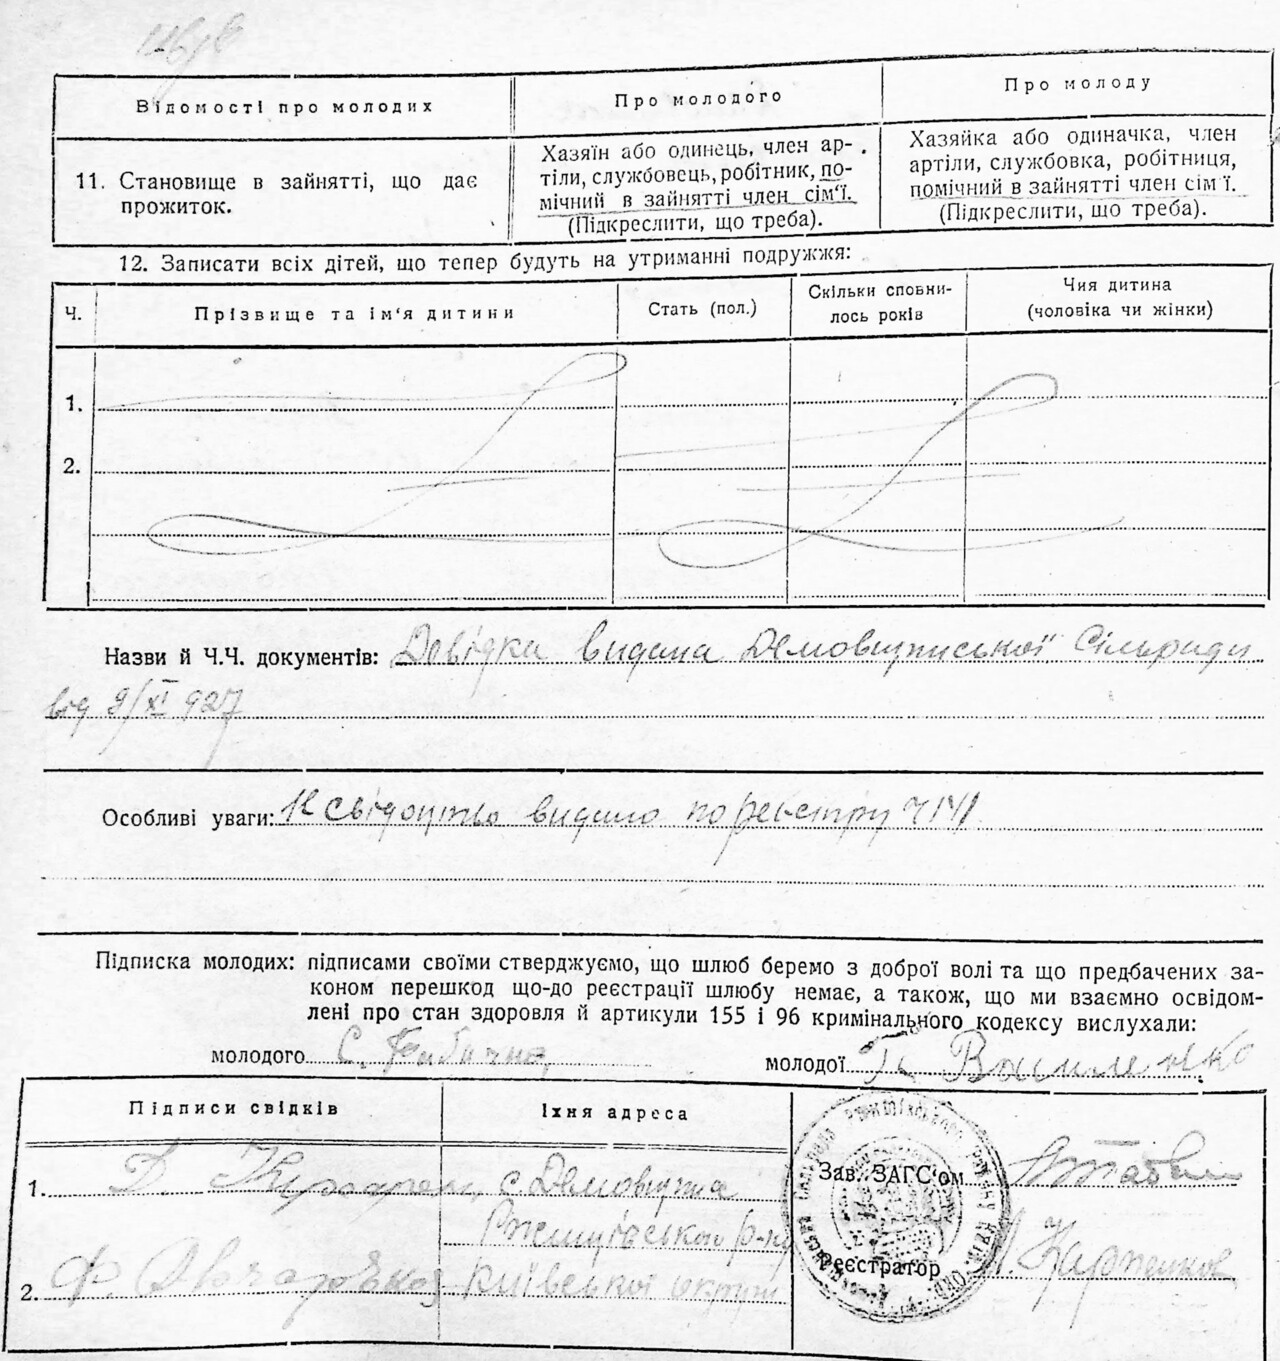 Відомості про молодих
Про молодого
Про молоду
11. Становище в зайнятті, що дає
прожиток.
Хазяїн або одинець, член ар-
тіли, службовець, робітник, по-
мічний в зайнятті член сім'ї.
(Підкреслити, що треба).
Хазяйка або одиначка, член
артіли, службовка, робітниця,
помічний в зайнятті член сім'ї.
(Підкреслити, що треба).
12. Записати всіх дітей, що тепер будуть на утриманні подружжя:
Ч.
Прізвище та ім'я дитини
Стать (пол.)
Скільки сповни-
лось років
Чия дитина
(чоловіка чи жінки)
1.
2.
Назви й Ч.Ч. документів: Довідка видана Демовщинської Сільради
від 9/XI 927
Особливі уваги: свідоцтво видано по реєстру
Підписка молодих: підписами своїми стверджуємо, що шлюб беремо з доброї волі та що предбачених за-
коном перешкод що-до реєстрації шлюбу немає, а також, що ми взаємно освідом-
лені про стан здоровля й артикули 155 і 96 кримінального кодексу вислухали:
молодого С.
молодої Василенко
Підписи свідків
Їхня адреса
1.
с Демовщина
Ржищівського р-ну
2. Ф.
Київської округи
Зав. ЗАГС'ом
Реєстратор